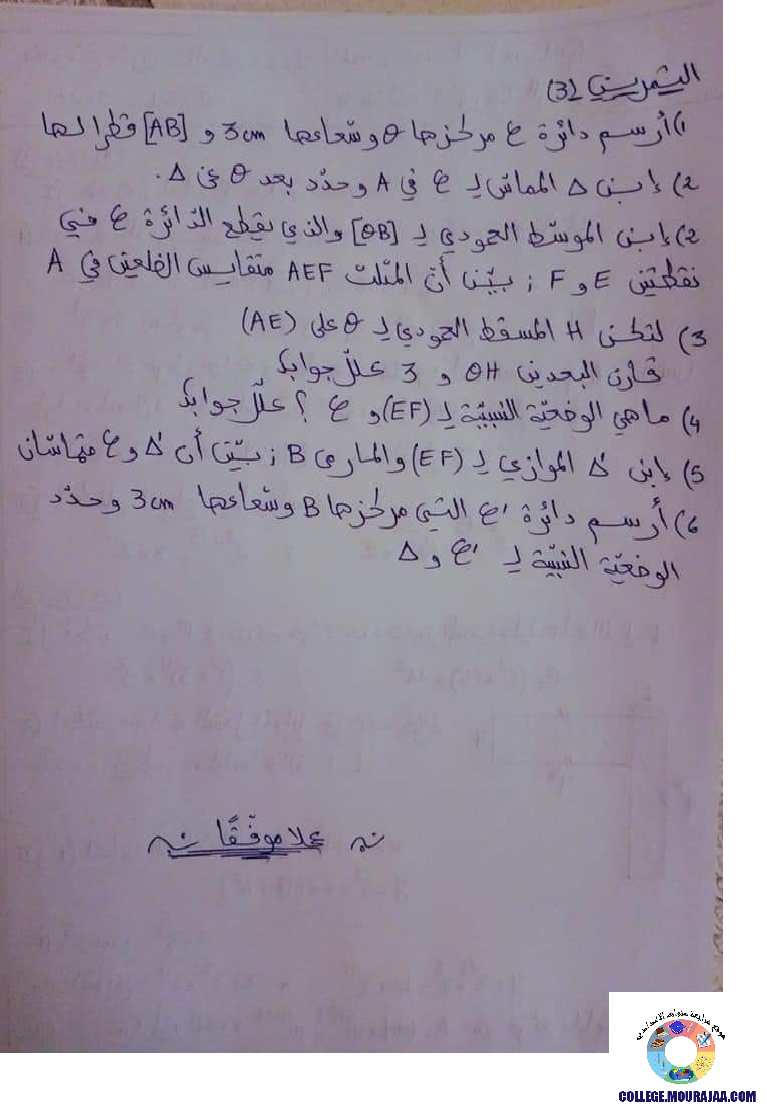 التمرين (3)
1) أرسم دائرة ع مركزها θ وشعاعها 3cm و [AB] قطرا لها
2) إبن Δ المماس لـ ع في A وحدد بعد θ عن Δ.
2) إبن الموسّط العمودي لـ [θB] والذي يقطع الدّائرة ع في
نقطتين E و F ; بيّن أنّ المثلث AEF متقايس الضلعين في A
3) لتكن H المسقط العمودي لـ θ على (AE)
قارن البعدين θH و 3 علّل جوابك
4) ماهي الوضعيّة النسبيّة لـ (EF) و ع ؟ علّل جوابك
5) إبن Δ' الموازي لـ (EF) والمار من B ; بيّن أن Δ' و ع متماسّان
6) أرسم دائرة ع' التي مركزها B وشعاعها 3cm وحدّد
الوضعيّة النسبيّة لـ ع' و Δ
عملا موفّقًا
موقع مراجعة
COLLEGE.MOURAJAA.COM